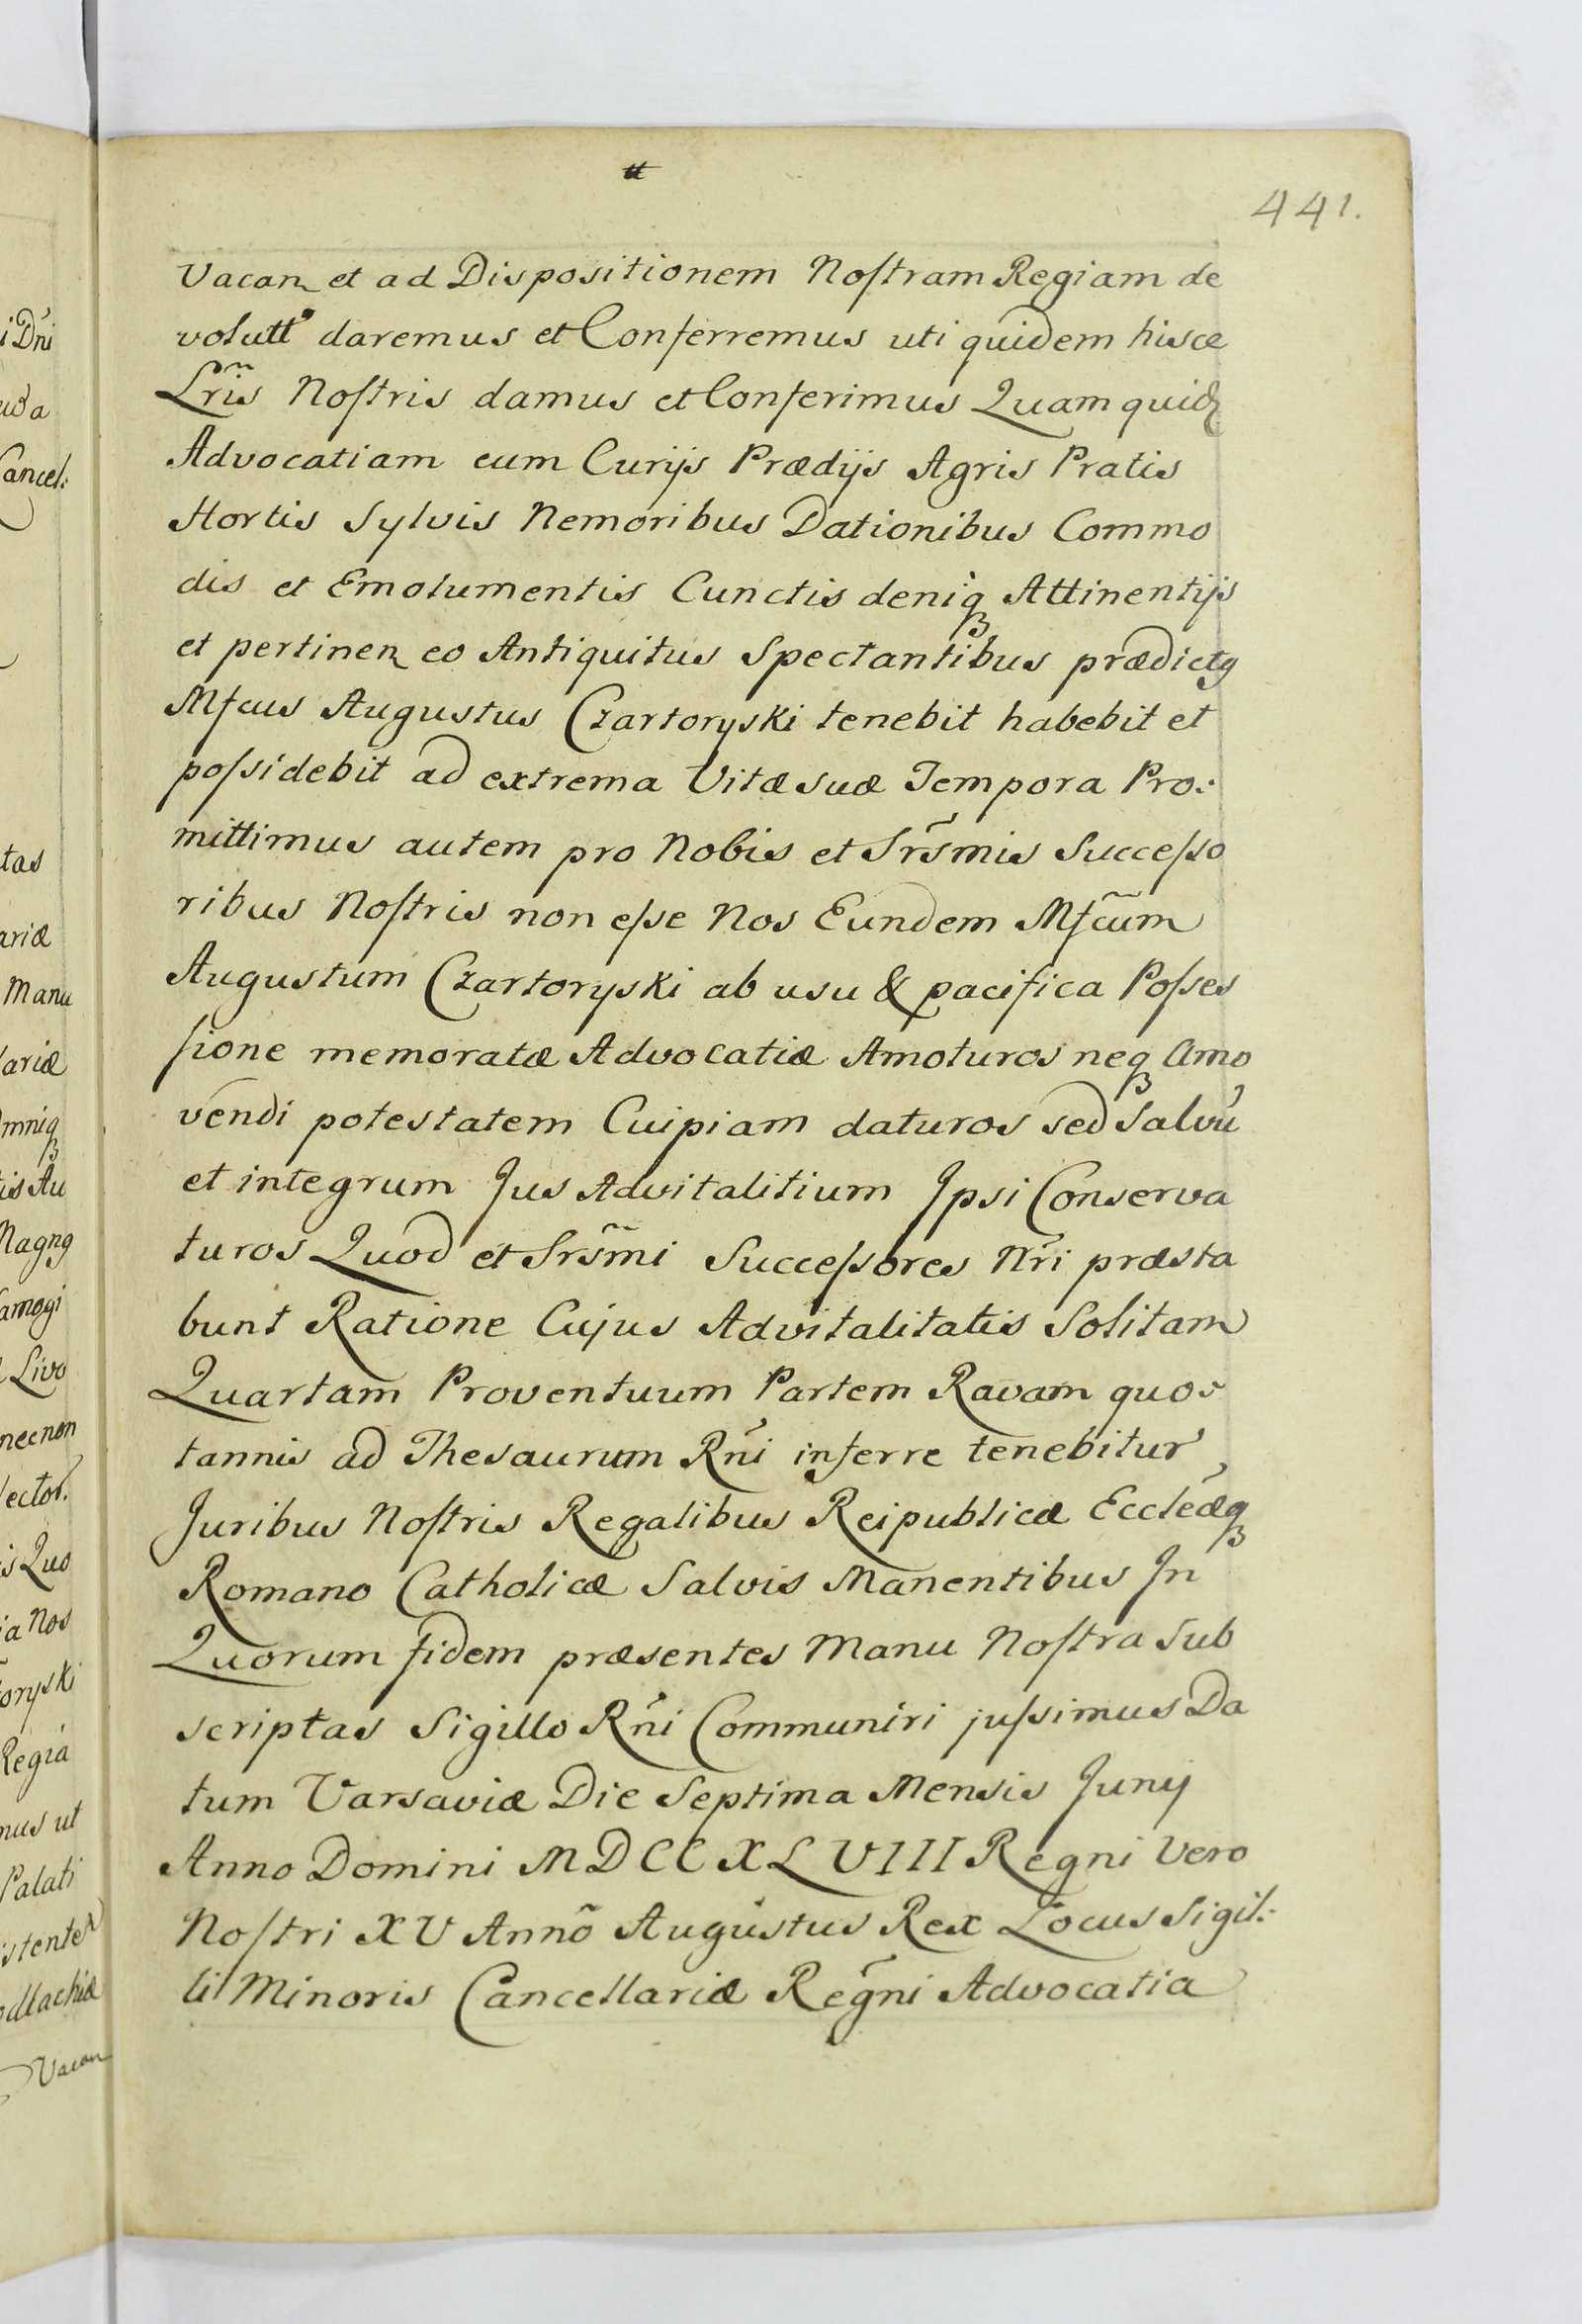 441.
Vacan et ad Dispositionem Noſtram Regiam de
volutt daremus et Conferremus uti quidem hisce
Lr̃is Noſtris damus et Conferimus Quam quid
Advocatiam cum Curijs Prædijs Agris Pratis
Hortis Sylvis Nemoribus Dationibus Commo
dis et Emolumentis Cunctis deniq Attinentijs
et pertinen eo Antiquitus Spectantibus prædictg
Mfcus Augustus Czartoryski tenebit habebit et
poſsidebit ad extrema Vitæ suæ Tempora Pro:
mittimus autem pro Nobis et Srs̃mis Succeſso
ribus Noſtris non eſse Nos Eundem Mfcũm
Augustum Czartoryski ab usu & pacifica Poſses
ſione memoratæ Advocatiæ Amoturos neq Amo
vendi potestatem Cuipiam daturos sed Salvũ
et integrum Jus Advitalitium Ipsi Conserva
turos Quod et Srs̃mi Succeſsores Nr̃i præsta
bunt Ratione Cujus Advitalitatis Solitam
Quartam Proventuum Partem Ravam quos
tannis ad Thesaurum Rñi inferre tenebitur
Juribus Noſtris Regalibus Reipublicæ Eccleæq
Romano Catholicæ Salvis Manentibus In
Quorum fidem præsentes Manu Noſtra Sub
scriptas Sigillo Rñi Communiri juſsimus Da
tum Varsaviæ Die Septima Mensis Junij
Anno Domini MDCCXLVIII Regni Vero
Noſtri XV Annõ Augustus Rex Locus Sigil:
li Minoris Cancellariæ Regni Advocatia